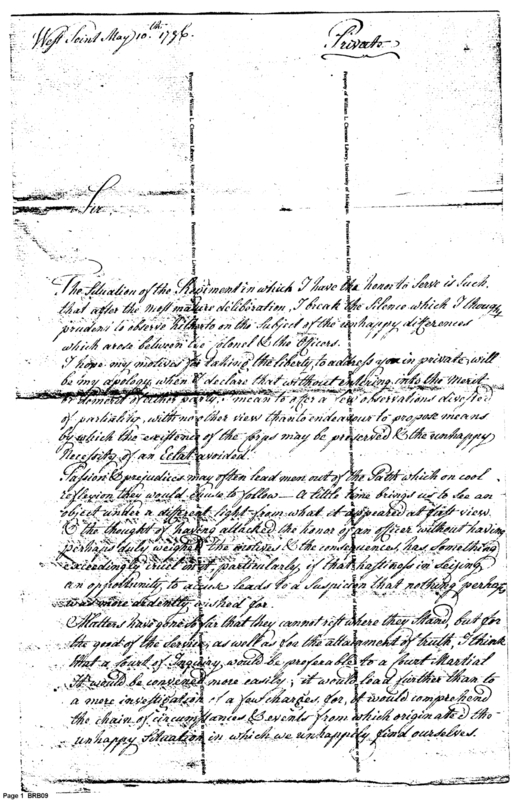 West Point May 10.th 1796.
Private
Property of William L. Clements Library, University of Michigan.
Property of William L. Clements Library, University of Michigan.
Sir
The Situation of the Regiment in which I have the honor to Serve is Such,
that after the most mature deliberation, I break the Silence which I thought
prudent to observe hitherto on the Subject of the unhappy differences
which arose between Lt. Colonel & the Officers.
I hope my motives for taking the liberty, to address you in private will
be my apology, when I declare that without entering into the merit
or demerit of either party, I mean to offer a few observations divested
of partiality, with no other view than to endeavour to propose means
by which the existence of the Corps may be preserved & the unhappy
Necessity of an Eclat avoided.
Passion & prejudices may often lead men out of the Path which on cool
reflexion they would chuse to follow — A little time brings us to see an
object under a different light from what it appeared at first view
& the thought of having attacked the honor of an officer without having
perhaps duly weighed the motives & the consequences, has something
exceedingly cruel in it, particularly, if that hastiness in seizing
an opportunity, to accuse leads to a Suspicion that nothing perhaps
was more ardently wished for.
Matters have gone so far that they cannot rest where they Stand, but for
the good of the Service, as well as for the attainment of truth, I think
that a Court of Inquiry, would be preferable to a Court Martial
It would be convened more easily; it would lead further than to
a mere investigation of a few charges, for, it would comprehend
the chain of circumstances & events from which originated the
unhappy Situation in which we unhappily find ourselves.
Page 1 BRB09